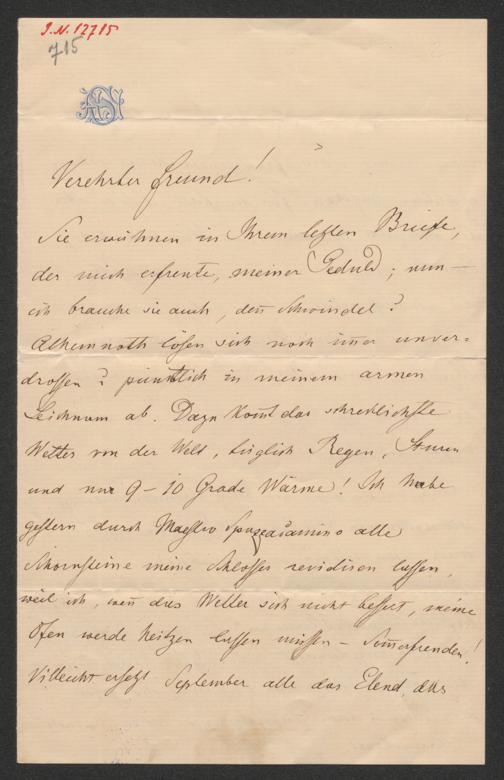 I.N. 12715
715
Verehrter Freund!
Sie erwähnen in Ihrem letzten Briefe,
der mich erfreute, meiner Geduld; nun —
ich brauche sie auch, den Schwindel &
Athemnoth lösen sich noch im̅er unver-
drossen & pünktlich in meinem armen
Leichnam ab. Dazu kom̅t das schrecklichste
Wetter von der Welt, täglich Regen, Sturm
und nur 9–10 Grade Wärme! Ich habe
gestern durch Maestro Spazzacamino alle
Schornsteine meines Schlosses revidiren lassen,
weil ich, wen̅ das Wetter sich nicht bessert, meine
Öfen werde heitzen lassen müssen – Som̅erfreuden!
Villeicht ersetzt September alle das Elend, das